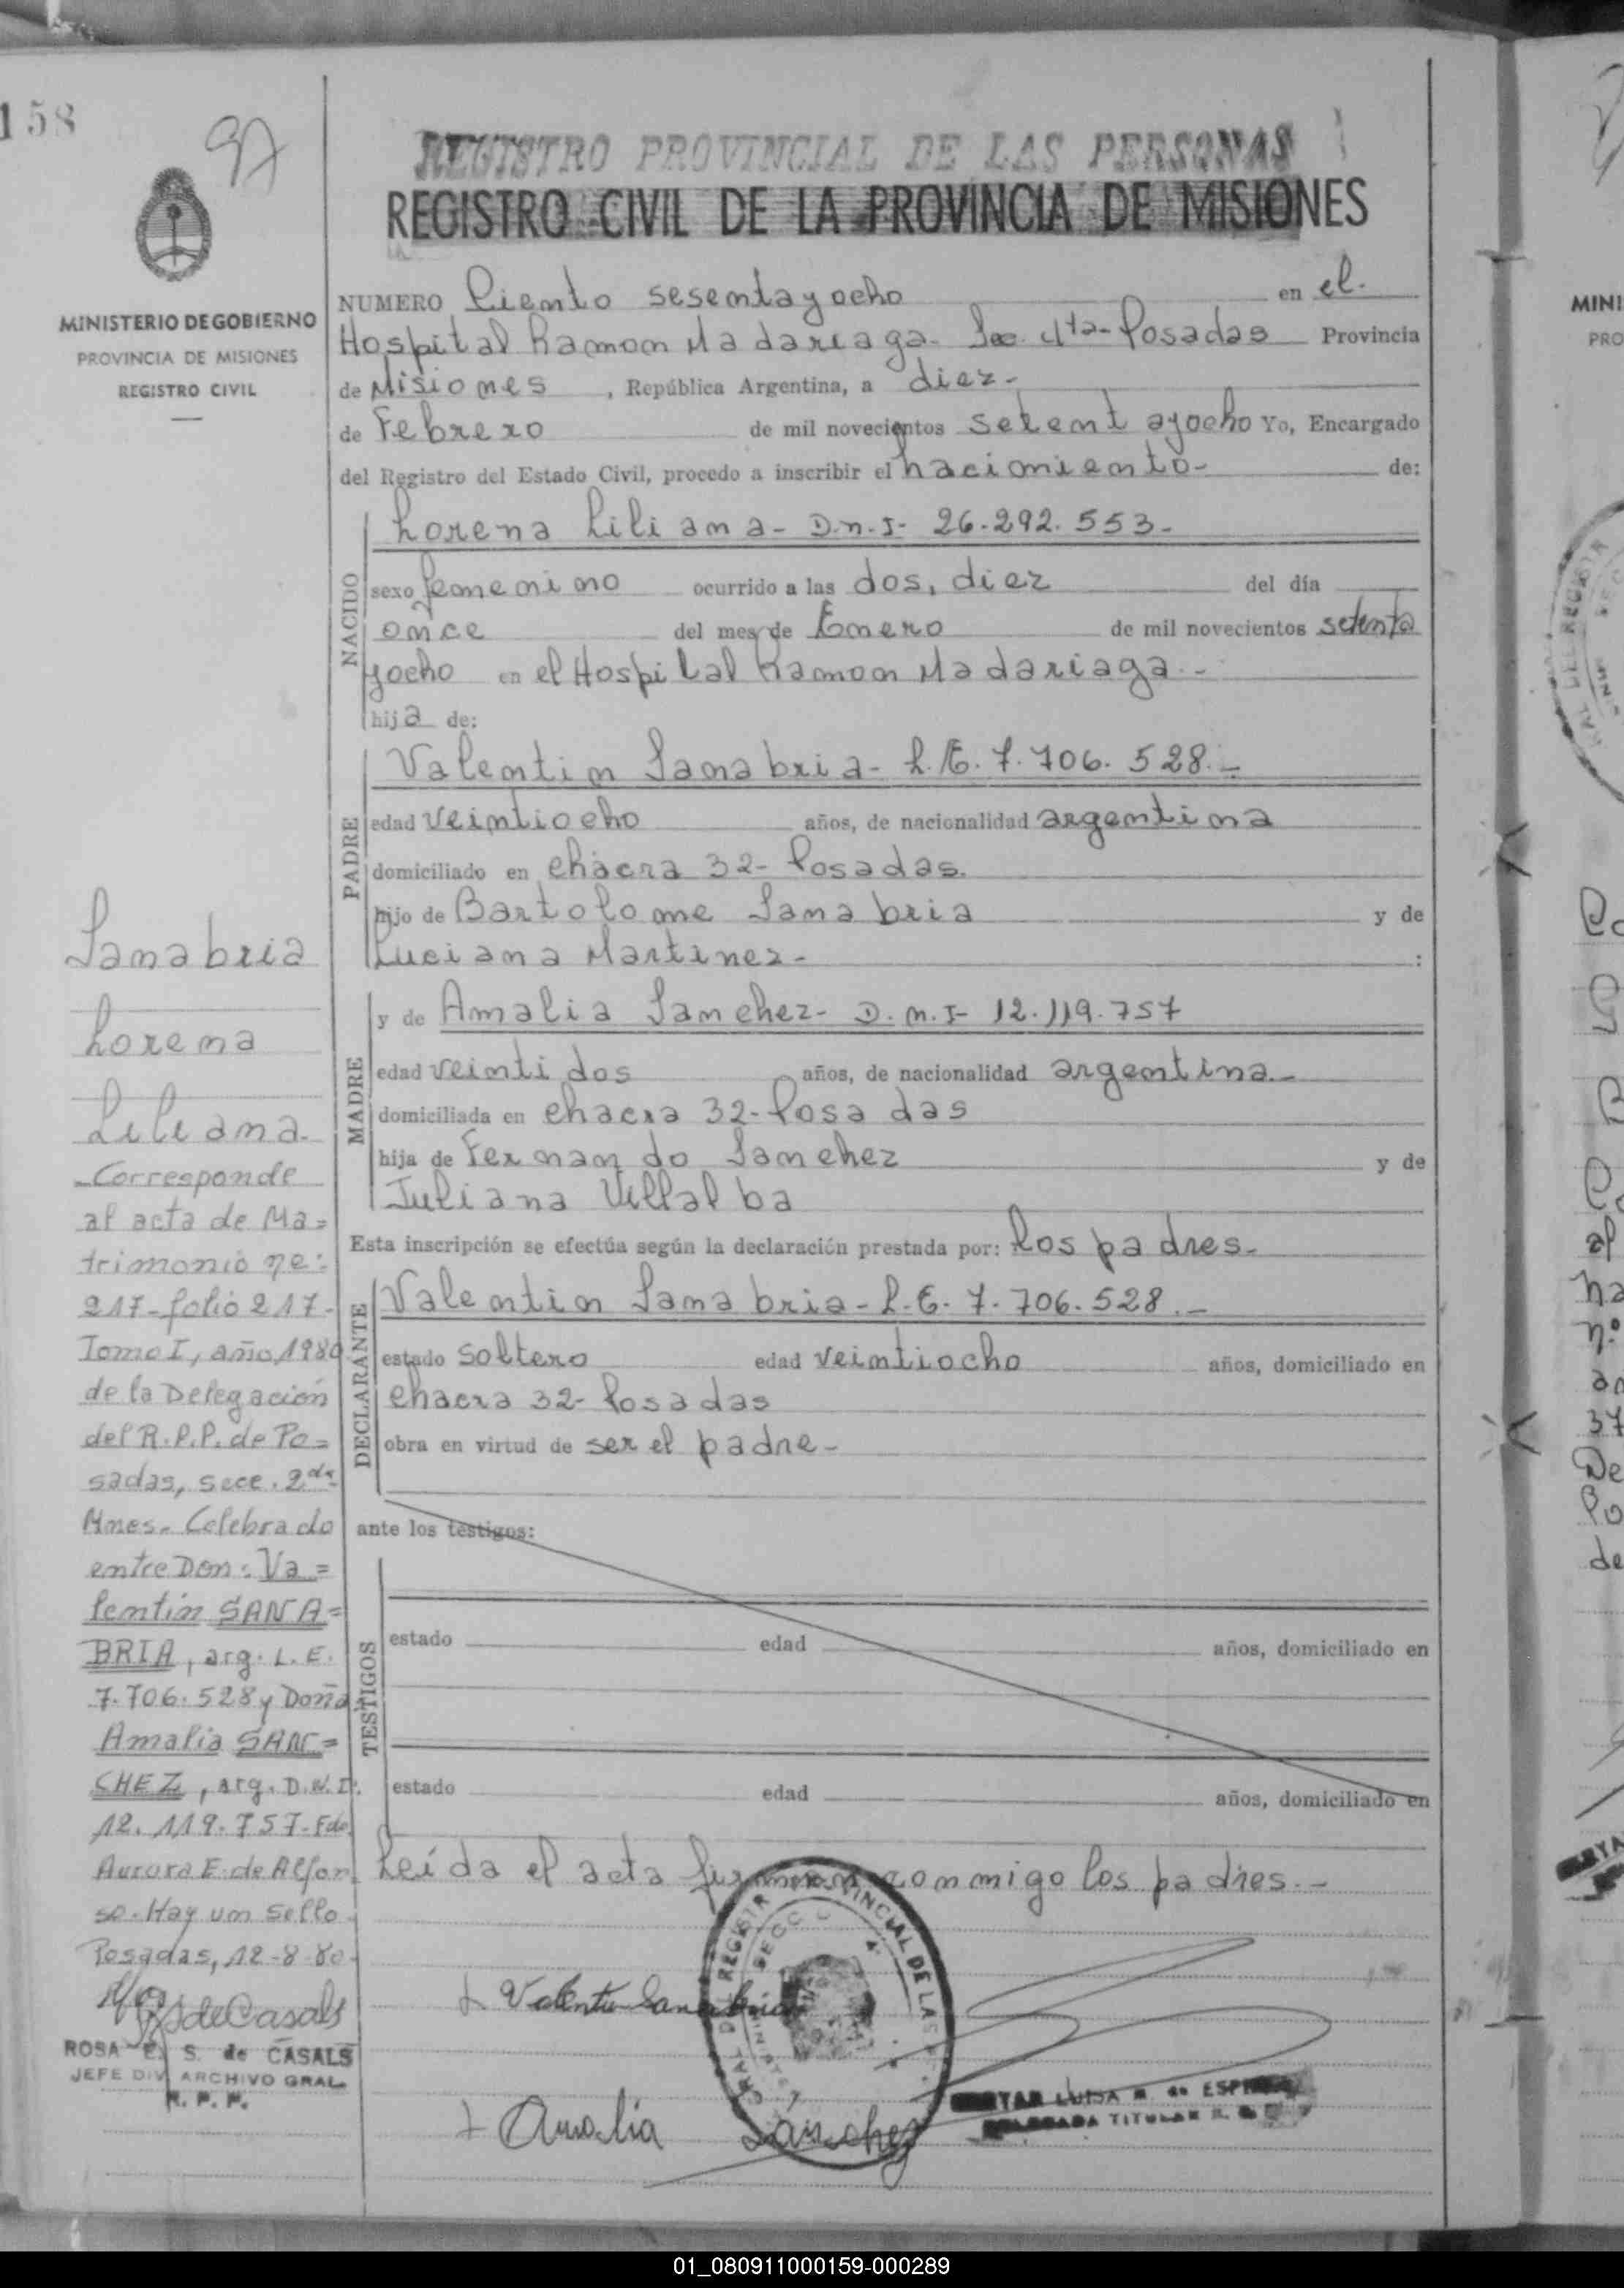 158
97
REGISTRO PROVINCIAL DE LAS PERSONAS
REGISTRO CIVIL DE LA PROVINCIA DE MISIONES
MINISTERIO DE GOBIERNO
PROVINCIA DE MISIONES
REGISTRO CIVIL
NUMERO Ciento sesenta y ocho en el.
Hospital Ramon Madariaga - Sec. 4ta - Posadas Provincia
de Misiones, República Argentina, a diez -
de Febrero de mil novecientos setenta y ocho Yo, Encargado
del Registro del Estado Civil, procedo a inscribir el nacimiento - de:
NACIDO
Lorena Liliana - D.n.I - 26.292.553 -
sexo femenino ocurrido a las dos, diez del día
once del mes de Enero de mil novecientos setenta
y ocho en el Hospital Ramon Madariaga. -
hija de:
PADRE
Valentin Sanabria - L.E. 7.706.528. -
edad veintiocho años, de nacionalidad argentina
domiciliado en chacra 32 - Posadas.
hijo de Bartolome Sanabria y de
Luciana Martinez - :
MADRE
y de Amalia Sanchez - D.n.I - 12.119.757
edad veintidos años, de nacionalidad argentina. -
domiciliada en chacra 32 - Posadas
hija de Fernando Sanchez y de
Juliana Villalba
Esta inscripción se efectúa según la declaración prestada por: los padres -
DECLARANTE
Valentin Sanabria - L.E. 7.706.528. -
estado soltero edad veintiocho años, domiciliado en
chacra 32 - Posadas
obra en virtud de ser el padre -
ante los testigos:
TESTIGOS
estado edad años, domiciliado en
estado edad años, domiciliado en
Leída el acta firman conmigo los padres. -
Valentin Sanabria
Amalia Sánchez
LUISA de
DELEGADA TITULAR
Sanabria
Lorena
Liliana -
- Corresponde
al acta de Ma=
trimonio nº:
217 - folio 217 -
Tomo I, año 1980
de la Delegación
del R.P.P. de Po=
sadas, secc. 2da
Mnes. Celebrado
entre Don: Va=
lentín SANA=
BRIA, arg. L.E.
7.706.528 y Doña
Amalia SAN=
CHEZ, arg. D.N.I.
12.119.757 - Fdo.
Aurora E. de Alfon
so - Hay un sello.
Posadas, 12-8-80 -
S de Casals
ROSA E. S. de CASALS
JEFE DIV. ARCHIVO GRAL.
R. P. P.
MINI
PRO
01_080911000159-000289